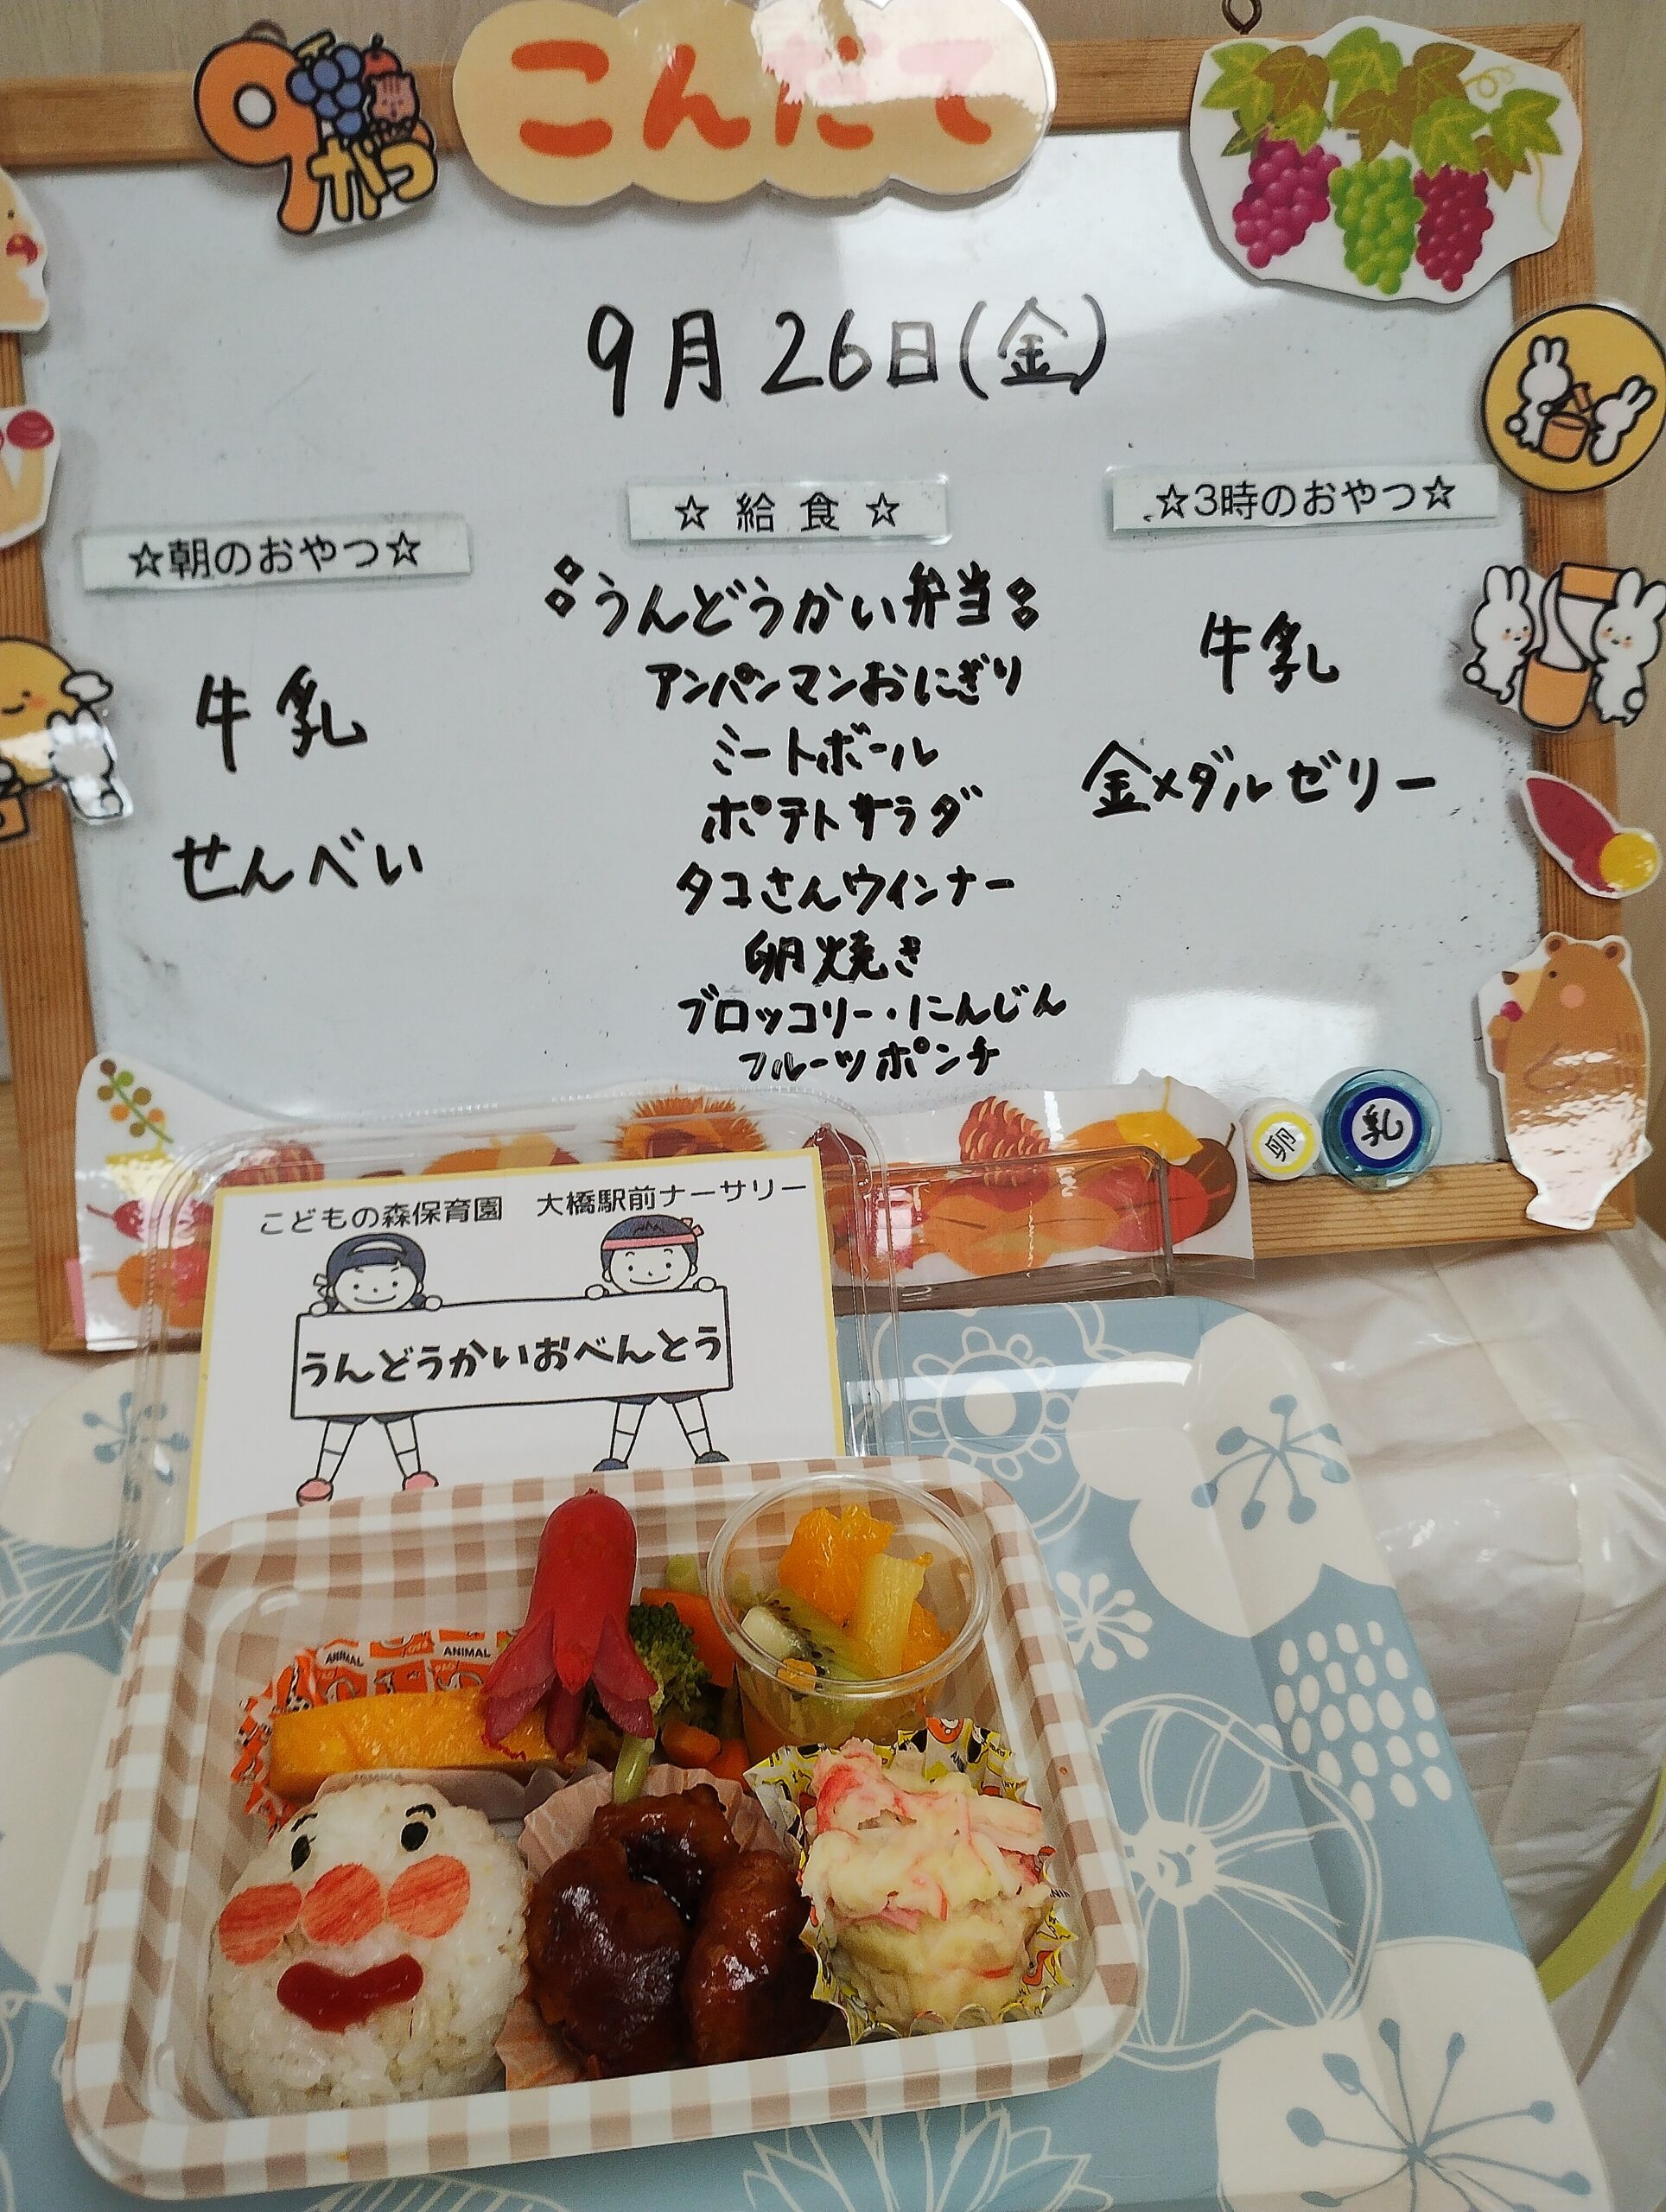 9がつ
こんだて
9月26日(金)
☆朝のおやつ☆
牛乳
せんべい
☆給食☆
うんどうかい弁当
アンパンマンおにぎり
ミートボール
ポテトサラダ
タコさんウインナー
卵焼き
ブロッコリー・にんじん
フルーツポンチ
☆3時のおやつ☆
牛乳
金メダルゼリー
卵
乳
こどもの森保育園 大橋駅前ナーサリー
うんどうかいおべんとう
ANIMAL
ANIMAL